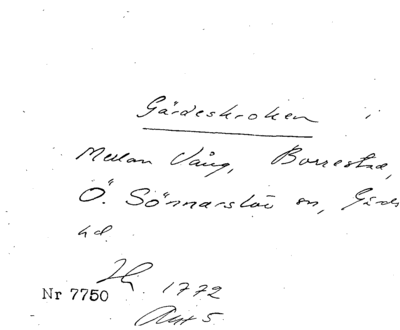 Gärdeskroken i
Mellan Vång, Borrestad,
Ö. Sönnarslöv sn, Gärds
hd.
1772
Nr 7750
Akt 5